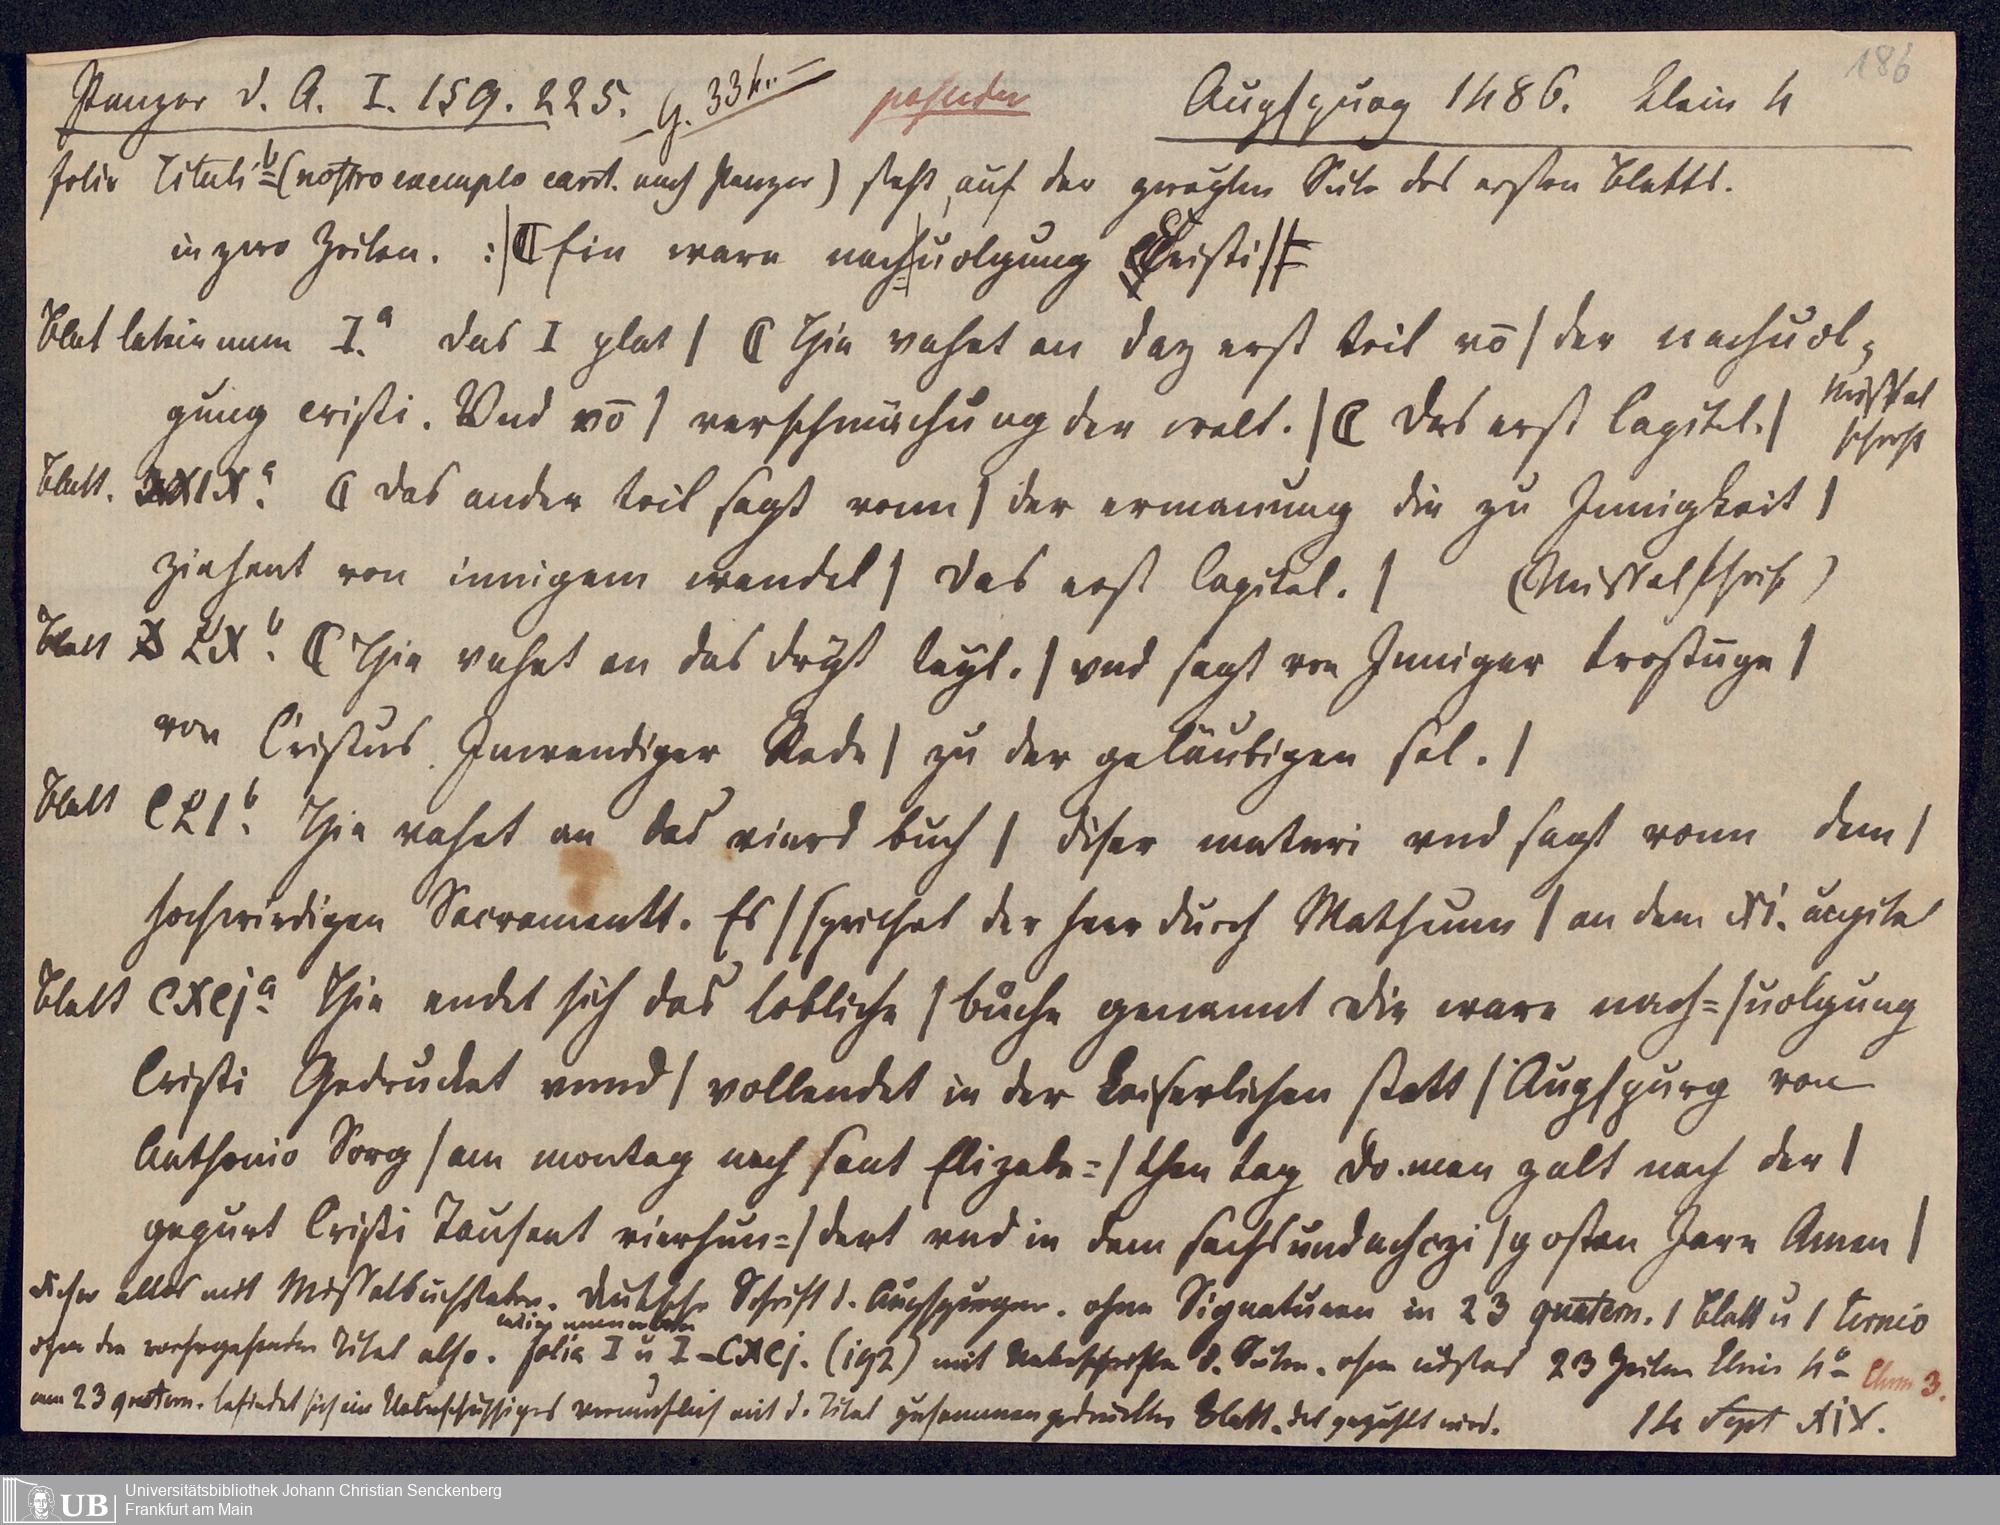 186
Panzer d. A. I. 159. 225. G. 33 kr. Augspurg 1486. klein 4
folio Tituli b (nostro exemplo caret. nach Panzer) steht auf der zweyten Seite des ersten Blatts.
in zwo Zeilen. :|ℂ Ein ware nach|uolgung Cristi||
Blat latein num I.a das I plat | ℂ Hie vahet an daz erst teil vō | der nachuol-
gung cristi. Vnd vō | verschmächung der welt. | ℂ Das erst Capitel. | Missal
schrift
Blatt. XXIX a. ℂ das ander teil sagt vonn | der ermanung die zu Innigkeit |
ziehent von innigem wandel | Das erst Capitel. | (Missalschrift)
Blatt LX b. ℂ Hie vahet an das dryt teyl. | vnd sagt von Inniger trostuge |
von Cristus Inwendiger Rede | zu der geläubigen sel. |
Blatt CLI b. Hie vahet an das vierd buch | diser materi vnd sagt vonn dem |
hochwirdigen Sacramentt. Es | sprichet der herr durch Matheum | an dem xi. capitel
Blatt CXCj a. Hie endet sich das lobliche | bůche genannt Die ware nach=|uolgung
Cristi Gedrucket vnnd | vollendet in der keiserlichen statt | Augspurg von
Anthonio Sorg | am montag nach sant Elizabe=|then tag Do man zalt nach der |
gepurt Cristi Tausent vierhun=|dert vnd in dem sechsundachczi|gosten Jare Amen |
alles mit Missalbuchstaben. Deutsche Schrift d. Augspurger. ohne Signaturen in 23 quatern. 1 Blatt u 1 ternio
ohne den vorhergehenden Titel also. folia I u I–CXCj. (192) mit Ueberschriften d. Seiten. ohne custos 23 Zeilen klein 4o 3.
am 23 quatern. befindet sich ein Ueberschüssiges vermuthlich mit d. Titel zusammengedrucktes Blatt. das gezählt wird. 14 Sept XIX.
Universitätsbibliothek Johann Christian Senckenberg
Frankfurt am Main
UB